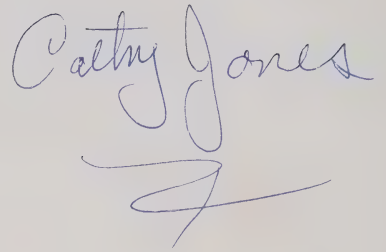 Cathy Jones